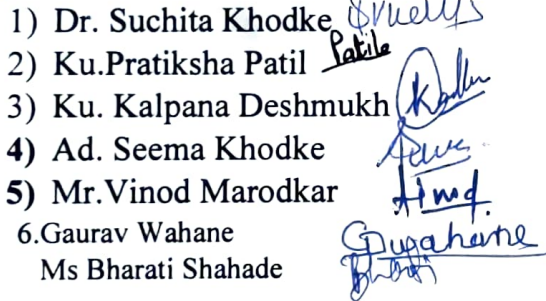 1) Dr. Suchita Khodke
2) Ku.Pratiksha Patil Patil
3) Ku. Kalpana Deshmukh
4) Ad. Seema Khodke
5) Mr.Vinod Marodkar
6.Gaurav Wahane
Ms Bharati Shahade